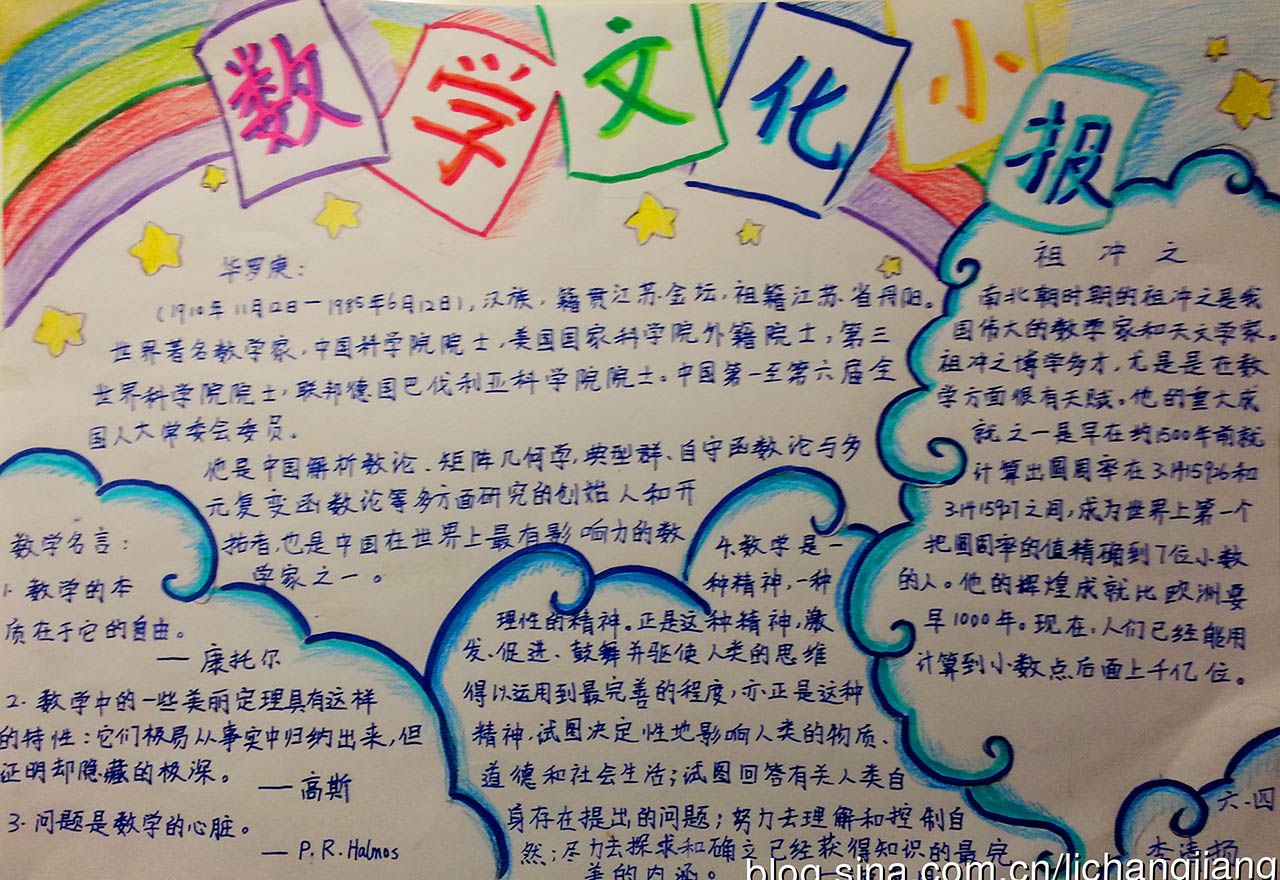 数学文化小报
华罗庚：
(1910年11月12日—1985年6月12日)，汉族，籍贯江苏金坛，祖籍江苏省丹阳。
世界著名数学家，中国科学院院士，美国国家科学院外籍院士，第三
世界科学院院士，联邦德国巴伐利亚科学院院士。中国第一至第六届全
国人大常委会委员。
他是中国解析数论、矩阵几何学，典型群、自守函数论与多
元复变函数论等多方面研究的创始人和开
拓者，也是中国在世界上最有影响力的数
学家之一。
祖冲之
南北朝时期的祖冲之是我
国伟大的数学家和天文学家。
祖冲之博学多才，尤是是在数
学方面很有天赋。他的重大成
就之一是早在约1500年前就
计算出圆周率在3.1415926和
3.1415927之间，成为世界上第一个
把圆周率的值精确到7位小数
的人。他的辉煌成就比欧洲要
早1000年。现在，人们已经能用
计算到小数点后面上千亿位。
数学名言：
1. 数学的本
质在于它的自由。
— 康托尔
2. 数学中的一些美丽定理具有这样
的特性：它们极易从事实中归纳出来，但
证明却隐藏的极深。
— 高斯
3. 问题是数学的心脏。
— P.R.Halmos
4. 数学是一
种精神，一种
理性的精神。正是这种精神，激
发、促进、鼓舞并驱使人类的思维
得以运用到最完善的程度，亦正是这种
精神，试图决定性地影响人类的物质、
道德和社会生活；试图回答有关人类自
身存在提出的问题；努力去理解和控制自
然；尽力去探求和确立已经获得知识的最完
美的内涵。
六.四
李清扬
blog.sina.com.cn/lichangjiang